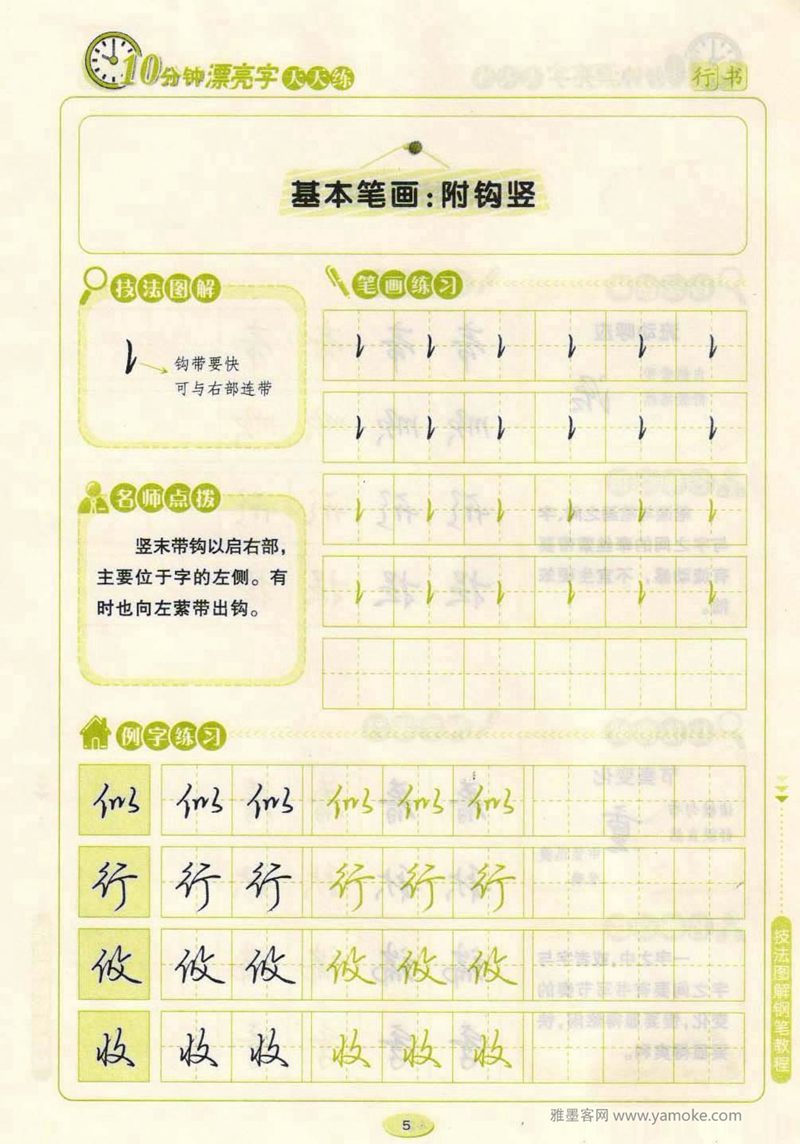 10分钟漂亮字天天练
行书
基本笔画:附钩竖
技法图解
钩带要快
可与右部连带
笔画练习
名师点拨
竖末带钩以启右部,
主要位于字的左侧。有
时也向左萦带出钩。
例字练习
似 似 似 似 似 似
行 行 行 行 行 行
攸 攸 攸 攸 攸 攸
收 收 收 收 收 收
技法图解钢笔教程
5
雅墨客网 www.yamoke.com